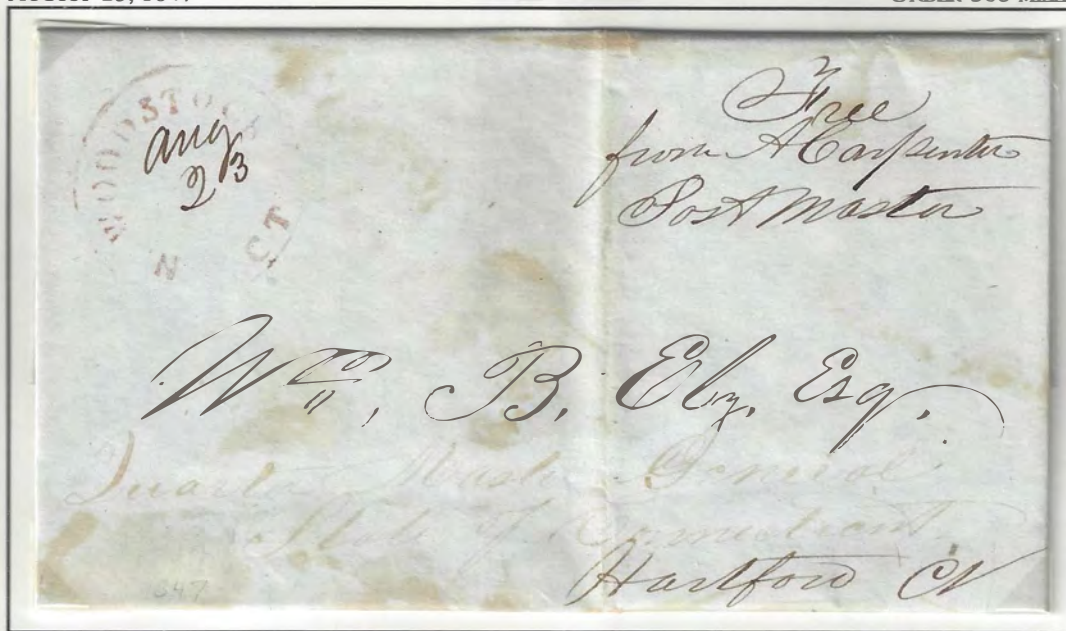 WOODSTOCK
N CT
Aug
23
Free
from A Carpenter
Post Master
Wm. B. Ely, Esq.
Quarter Master General
State of Connecticut
Hartford Ct
1847